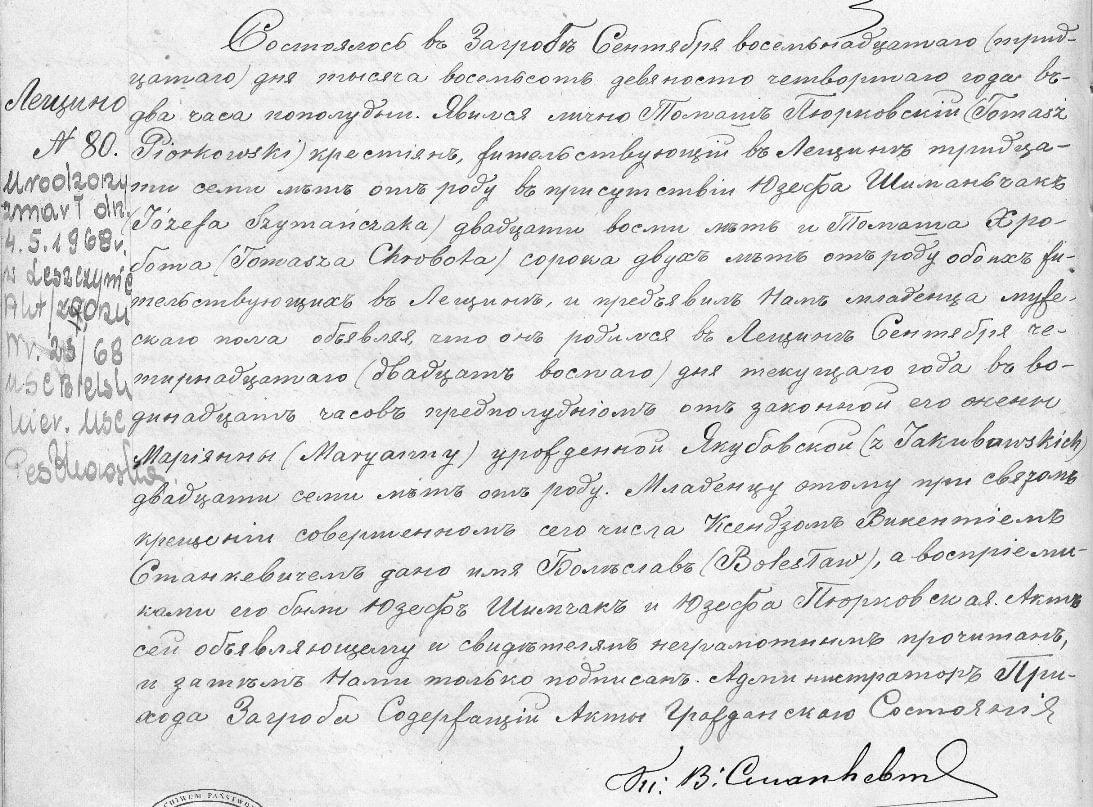 Состоялось въ Загробѣ Сентября восемьнадцатаго (трид-
цатаго) дня тысяча восемьсотъ девяносто четвортаго года въ
два часа пополудни. Явился лично Томашъ Пюрковскій (Tomasz
Piorkowski) крестіян, жительствующій въ Лещинѣ тридца-
ти семи лѣтъ отъ роду в присутствіи Юзефа Шиманьчакъ
(Józefa Szymańczaka) двадцати восми лѣтъ и Томаша Хро-
бота (Tomasza Chrobota) сорока двухъ лѣтъ отъ роду обоихъ жи-
тельствующихъ в Лещинѣ, и предъявилъ Намъ младенца муже-
скаго пола объявляя, что онъ родился въ Лещинѣ Сентября че-
тирнадцатаго (двадцатъ востаго) дня текущаго года въ во-
динадцатъ часовъ предполудніомъ отъ законной его жены
Маріянны (Maryanny) урожденной Якубовской (z Jakubowskich)
двадцати семи лѣтъ отъ роду. Младенцу этому при святомъ
крещеніи совершенномъ сего числа Ксендзомъ Викентіемъ
Станкевичемъ дано имя Болѣславъ (Bolesław), а воспріеми-
ками его были Юзефъ Шимчакъ и Юзефа Пюрковская. Актъ
сей объявляющему и свидѣтелямъ неграмотнимъ прочитанъ,
и затѣмъ Нами только подписанъ. Администраторъ При-
хода Загроба Содержащій Акты Гражданскаго Состоянія
Кс: В: Станкевич
Лещино
N 80.
Urodzony
zmarł dn.
4.5.1968r.
w Leszczynie
Akt/zgonu
Nr. 23/68
USC Bielsk
Kier. USC
CHIWUM PAŃSTWO